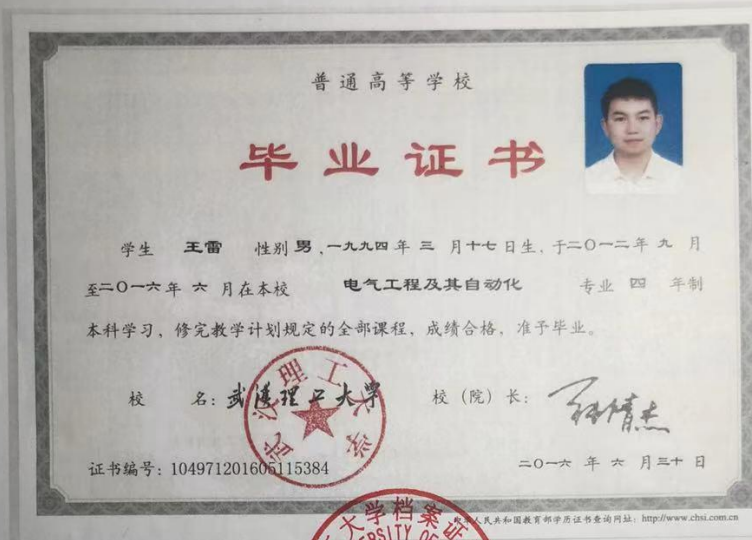 普通高等学校
毕业证书
学生 王雷 性别 男，一九九四年 三 月十七日生，于二〇一二年 九 月
至二〇一六年 六 月在本校 电气工程及其自动化 专业 四 年制
本科学习，修完教学计划规定的全部课程，成绩合格，准予毕业。
校 名：武汉理工大学 校（院）长：
武汉理工大学
证书编号：104971201605115384 二〇一六 年 六 月三十日
中华人民共和国教育部学历证书查询网址：http://www.chsi.com.cn
大学档案